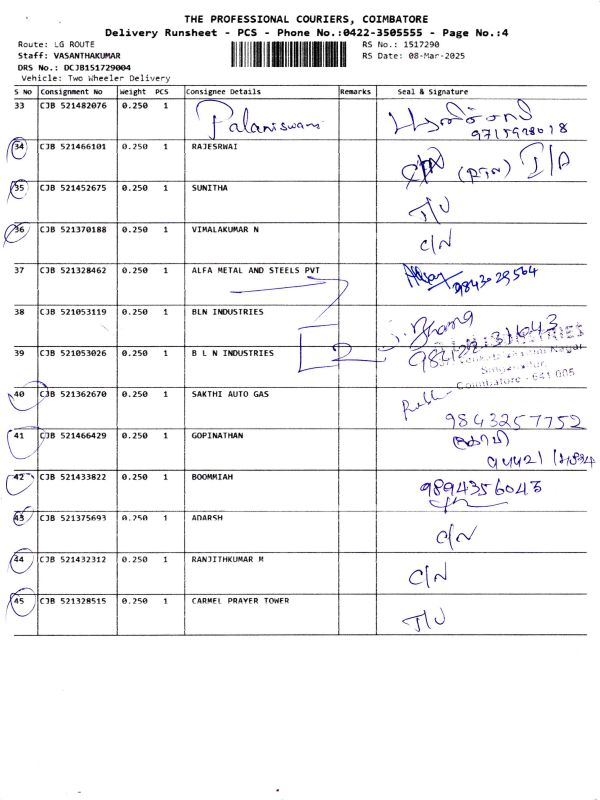 THE PROFESSIONAL COURIERS, COIMBATORE
Delivery Runsheet - PCS - Phone No.:0422-3505555 - Page No.:4
Route: LG ROUTE RS No.: 1517290
Staff: VASANTHAKUMAR RS Date: 08-Mar-2025
DRS No.: DCJB151729004
Vehicle: Two Wheeler Delivery
S NO Consignment No Weight PCS Consignee Details Remarks Seal & Signature
33 CJB 521482076 0.250 1 Palaniswami
9715928018
34 CJB 521466101 0.250 1 RAJESRWAI C/N (RTN) I/A
35 CJB 521452675 0.250 1 SUNITHA I/U
36 CJB 521370188 0.250 1 VIMALAKUMAR N C/N
37 CJB 521328462 0.250 1 ALFA METAL AND STEELS PVT 9843029564
38 CJB 521053119 0.250 1 BLN INDUSTRIES
39 CJB 521053026 0.250 1 B L N INDUSTRIES 2
Coimbatore - 641 005
40 CJB 521362670 0.250 1 SAKTHI AUTO GAS
9843257752
41 CJB 521466429 0.250 1 GOPINATHAN
42 CJB 521433822 0.250 1 BOOMMIAH 9894356043
43 CJB 521375693 0.250 1 ADARSH C/N
44 CJB 521432312 0.250 1 RANJITHKUMAR M C/N
45 CJB 521328515 0.250 1 CARMEL PRAYER TOWER I/U